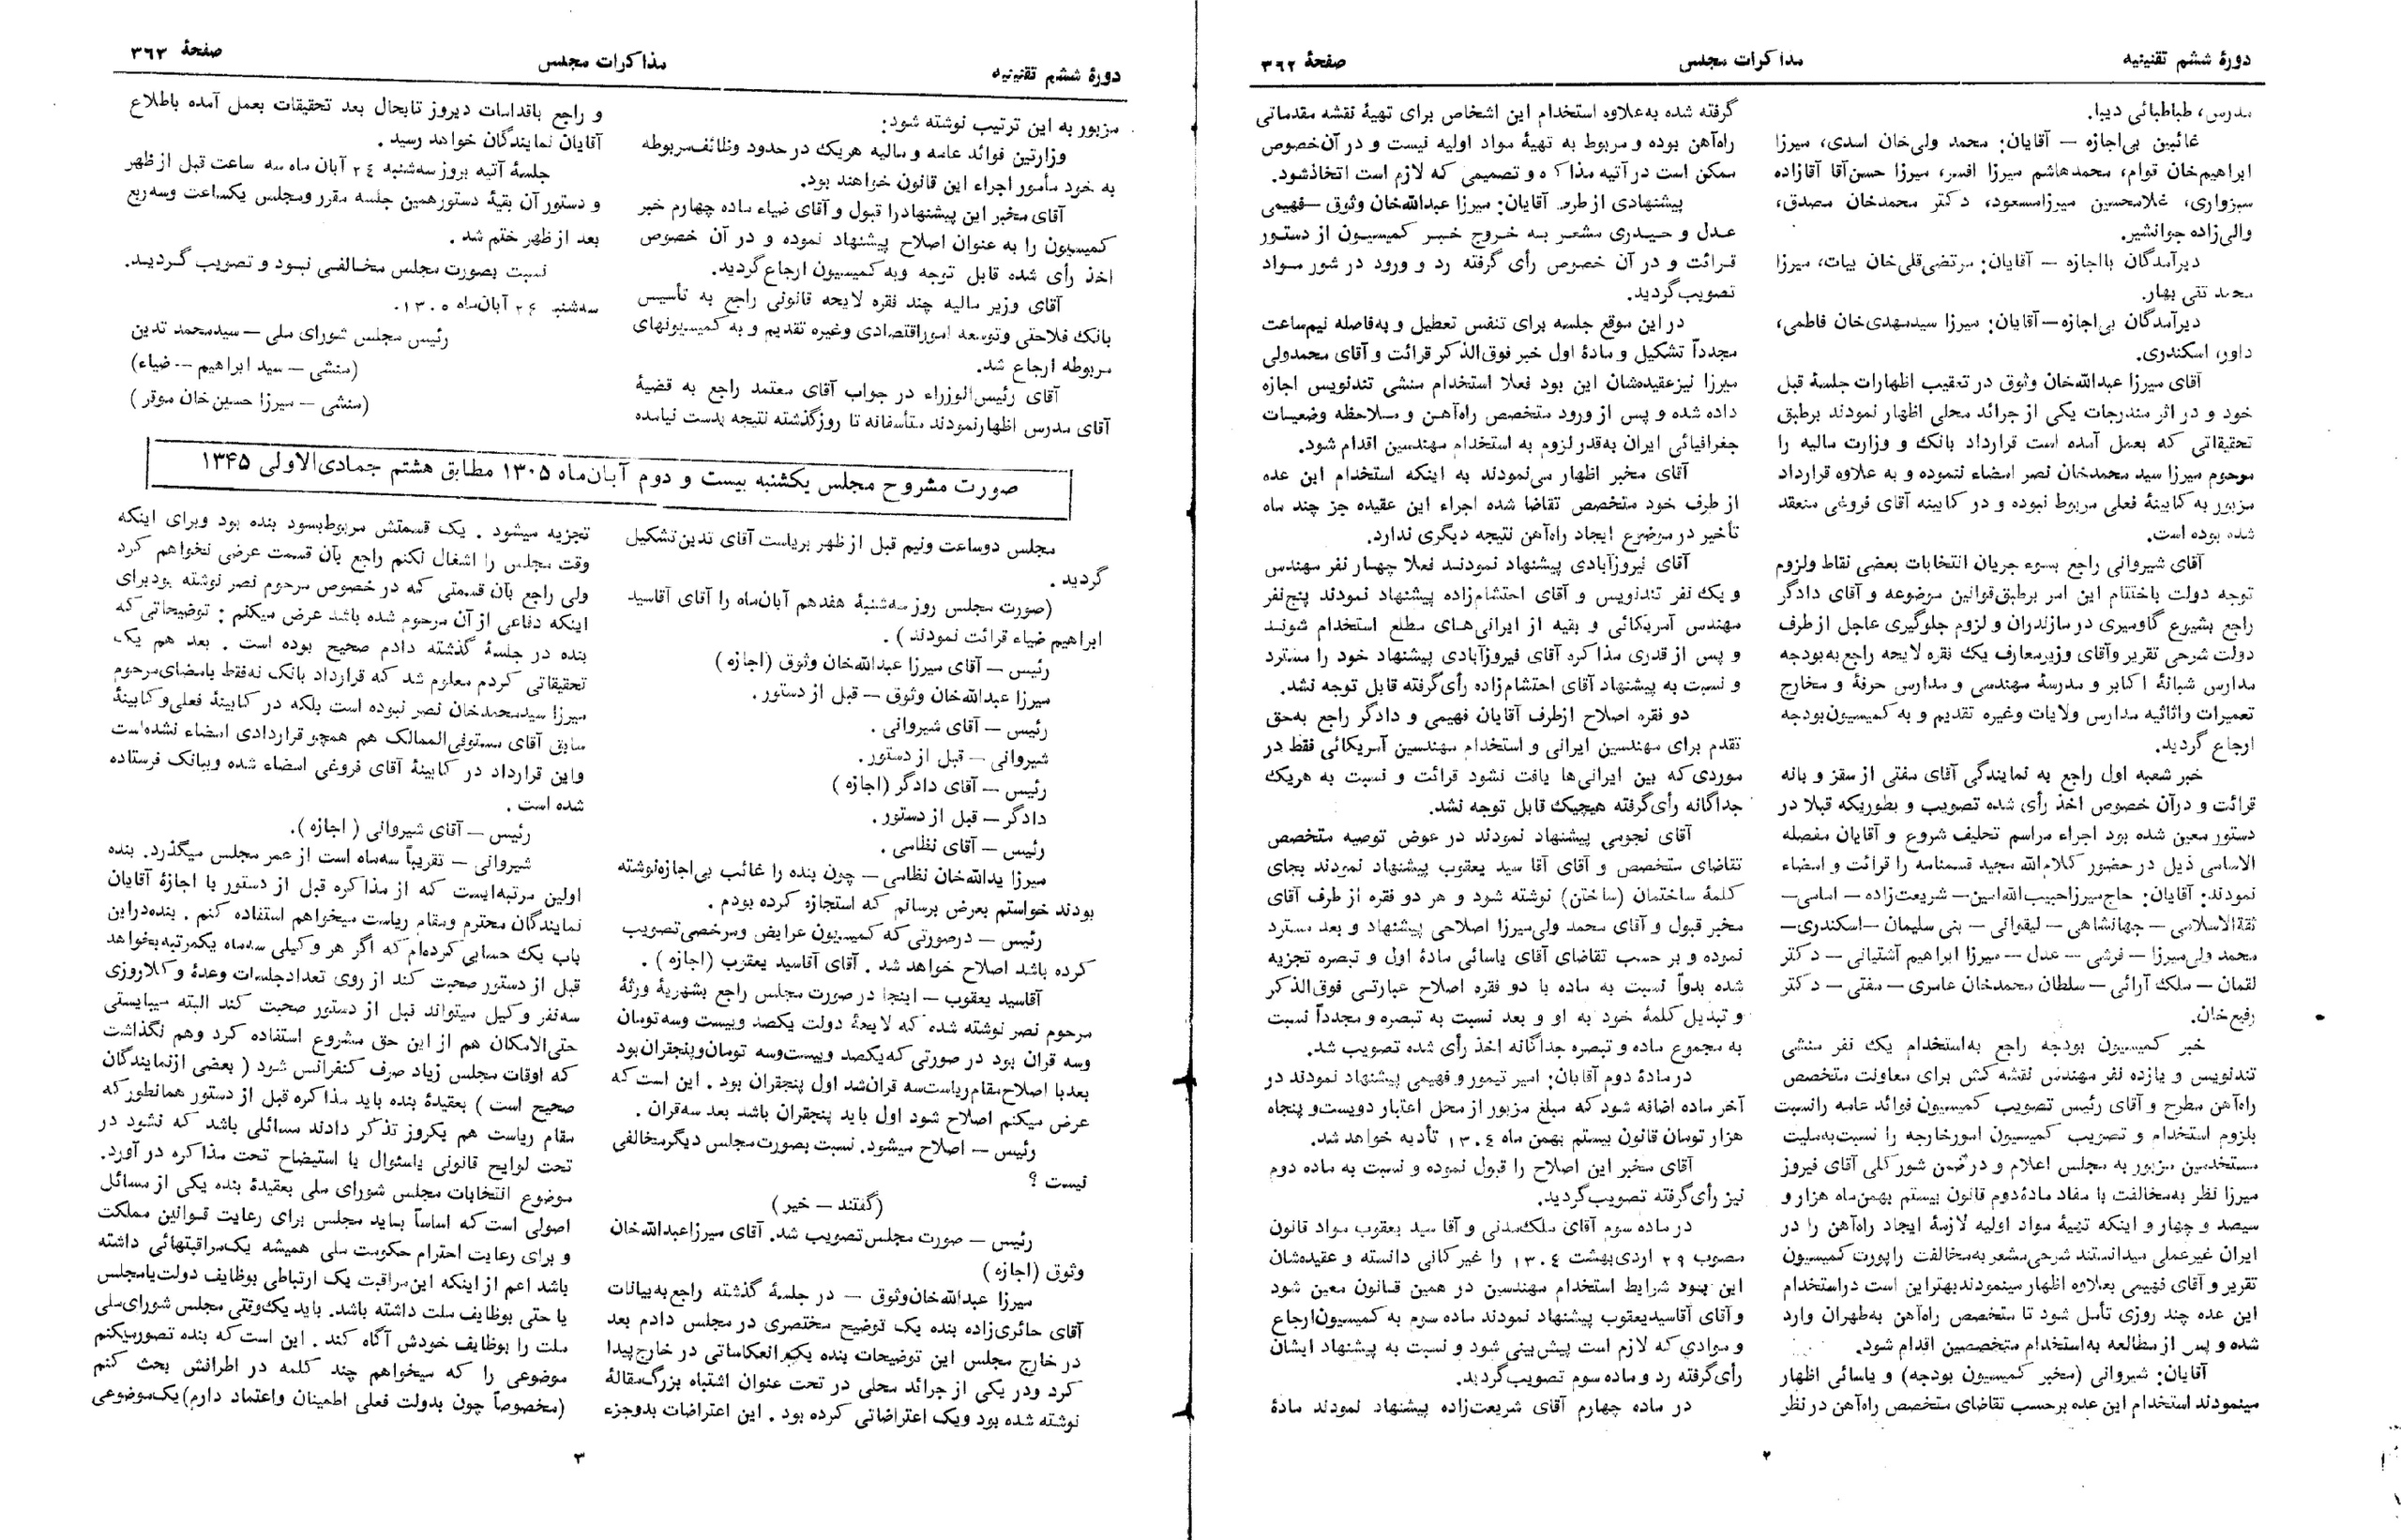 دورهٔ ششم تقنینیه
مذاکرات مجلس
صفحهٔ ۳۶۲
مدرس، طباطبائی دیبا.
غائبین بی‌اجازه — آقایان: محمد ولی‌خان اسدی، میرزا
ابراهیم‌خان قوام، محمدهاشم میرزا افسر، میرزا حسن‌آقا آقازاده
سبزواری، غلامحسین میرزامسعود، دکتر محمدخان مصدق،
والی‌زاده جوانشیر.
دیرآمدگان بااجازه — آقایان: مرتضی‌قلی‌خان بیات، میرزا
محمد تقی بهار.
دیرآمدگان بی‌اجازه — آقایان: میرزا سیدمهدی‌خان فاطمی،
داور، اسکندری.
آقای میرزا عبدالله‌خان وثوق در تعقیب اظهارات جلسهٔ قبل
خود و در اثر مندرجات یکی از جرائد محلی اظهار نمودند برطبق
تحقیقاتی که بعمل آمده است قرارداد بانک و وزارت مالیه را
مرحوم میرزا سید محمدخان نصر امضاء ننموده و به علاوه قرارداد
مزبور به کابینهٔ فعلی مربوط نبوده و در کابینه آقای فروغی منعقد
شده بوده است.
آقای شیروانی راجع بسوء جریان انتخابات بعضی نقاط ولزوم
توجه دولت باختتام این امر برطبق‌قوانین موضوعه و آقای دادگر
راجع بشیوع گاومیری در مازندران و لزوم جلوگیری عاجل از طرف
دولت شرحی تقریر وآقای وزیرمعارف یک فقره لایحه راجع به‌بودجه
مدارس شبانهٔ اکابر و مدرسهٔ مهندسی و مدارس حرفهٔ و مخارج
تعمیرات واثاثیه مدارس ولایات وغیره تقدیم و به کمیسیون‌بودجه
ارجاع گردید.
خبر شعبه اول راجع به نمایندگی آقای مفتی از سقز و بانه
قرائت و درآن خصوص اخذ رأی شده تصویب و بطوریکه قبلا در
دستور معین شده بود اجراء مراسم تحلیف شروع و آقایان مفصله
الاسامی ذیل در حضور کلام‌الله مجید قسمنامه را قرائت و امضاء
نمودند: آقایان: حاج‌میرزاحبیب‌الله‌امین — شریعت‌زاده — امامی —
ثقةالاسلامی — جهانشاهی — لیقوانی — بنی سلیمان — اسکندری —
محمد ولی‌میرزا — فرشی — عدل — میرزا ابراهیم آشتیانی — دکتر
لقمان — ملک آرائی — سلطان محمدخان عامری — مفتی — دکتر
رفیع‌خان.
خبر کمیسیون بودجه راجع به‌استخدام یک نفر منشی
تندنویس و یازده نفر مهندس نقشه کش برای معاونت متخصص
راه‌آهن مطرح و آقای رئیس تصویب کمیسیون فوائد عامه رانسبت
بلزوم استخدام و تصویب کمیسیون امورخارجه را نسبت‌به‌ملیت
مستخدمین مزبور به مجلس اعلام و درضمن شورکلی آقای فیروز
میرزا نظر به‌مخالفت با مفاد مادهٔ‌دوم قانون بیستم بهمن‌ماه هزار و
سیصد و چهار و اینکه تهیهٔ مواد اولیه لازمهٔ ایجاد راه‌آهن را در
ایران غیرعملی میدانستند شرحی‌مشعر به‌مخالفت راپورت کمیسیون
تقریر و آقای فهیمی بعلاوه اظهار مینمودند بهتراین است دراستخدام
این عده چند روزی تأمل شود تا متخصص راه‌آهن به‌طهران وارد
شده و پس از مطالعه به‌استخدام متخصصین اقدام شود.
آقایان: شیروانی (مخبر کمیسیون بودجه) و یاسائی اظهار
مینمودند استخدام این عده برحسب تقاضای متخصص راه‌آهن در نظر
گرفته شده به‌علاوه استخدام این اشخاص برای تهیهٔ نقشه مقدماتی
راه‌آهن بوده و مربوط به تهیهٔ مواد اولیه نیست و در آن‌خصوص
ممکن است در آتیه مذاکره و تصمیمی که لازم است اتخاذشود.
پیشنهادی از طرف آقایان: میرزا عبدالله‌خان وثوق — فهیمی
عدل و حیدری مشعر به خروج خبر کمیسیون از دستور
قرائت و در آن خصوص رأی گرفته رد و ورود در شور مواد
تصویب‌گردید.
در این موقع جلسه برای تنفس تعطیل و به‌فاصله نیم‌ساعت
مجدداً تشکیل و مادهٔ اول خبر فوق‌الذکر قرائت و آقای محمدولی
میرزا نیزعقیده‌شان این بود فعلا استخدام منشی تندنویس اجازه
داده شده و پس از ورود متخصص راه‌آهن و ملاحظه وضعیات
جغرافیائی ایران به‌قدر لزوم به استخدام مهندسین اقدام شود.
آقای مخبر اظهار می‌نمودند به اینکه استخدام این عده
از طرف خود متخصص تقاضا شده اجراء این عقیده جز چند ماه
تأخیر در موضوع ایجاد راه‌آهن نتیجه دیگری ندارد.
آقای فیروزآبادی پیشنهاد نمودند فعلا چهار نفر مهندس
و یک نفر تندنویس و آقای احتشام‌زاده پیشنهاد نمودند پنج‌نفر
مهندس آمریکائی و بقیه از ایرانی‌های مطلع استخدام شوند
و پس از قدری مذاکره آقای فیروزآبادی پیشنهاد خود را مسترد
و نسبت به پیشنهاد آقای احتشام‌زاده رأی‌گرفته قابل توجه نشد.
دو فقره اصلاح ازطرف آقایان فهیمی و دادگر راجع به‌حق
تقدم برای مهندسین ایرانی و استخدام مهندسین آمریکائی فقط در
موردی که بین ایرانی‌ها یافت نشود قرائت و نسبت به هریک
جداگانه رأی‌گرفته هیچیک قابل توجه نشد.
آقای نجومی پیشنهاد نمودند در عوض توصیه متخصص
تقاضای متخصص و آقای آقا سید یعقوب پیشنهاد نمودند بجای
کلمهٔ ساختمان (ساختن) نوشته شود و هر دو فقره از طرف آقای
مخبر قبول و آقای محمد ولی‌میرزا اصلاحی پیشنهاد و بعد مسترد
نموده و بر حسب تقاضای آقای یاسائی مادهٔ اول و تبصره تجزیه
شده بدواً نسبت به ماده با دو فقره اصلاح عبارتی فوق‌الذکر
و تبدیل کلمهٔ خود به او و بعد نسبت به تبصره و مجدداً نسبت
به مجموع ماده و تبصره جداگانه اخذ رأی شده تصویب شد.
در مادهٔ دوم آقایان: امیر تیمور و فهیمی پیشنهاد نمودند در
آخر ماده اضافه شود که مبلغ مزبور از محل اعتبار دویست‌و پنجاه
هزار تومان قانون بیستم بهمن ماه ۱۳۰۴ تأدیه خواهد شد.
آقای مخبر این اصلاح را قبول نموده و نسبت به ماده دوم
نیز رأی‌گرفته تصویب‌گردید.
در ماده سوم آقای ملک‌مدنی و آقا سید یعقوب مواد قانون
مصوب ۲۹ اردی‌بهشت ۱۳۰۴ را غیرکافی دانسته و عقیده‌شان
این بود شرایط استخدام مهندسین در همین قانون معین شود
و آقای آقاسیدیعقوب پیشنهاد نمودند ماده سوم به کمیسیون‌ارجاع
و موادی که لازم است پیش‌بینی شود و نسبت به پیشنهاد ایشان
رأی‌گرفته رد و ماده سوم تصویب‌گردید.
در ماده چهارم آقای شریعت‌زاده پیشنهاد نمودند مادهٔ
۲
دورهٔ ششم تقنینیه
مذاکرات مجلس
صفحهٔ ۳۶۳
مزبور به این ترتیب نوشته شود:
وزارتین فوائد عامه و مالیه هریک در حدود وظائف‌مربوطه
به خود مأمور اجراء این قانون خواهند بود.
آقای مخبر این پیشنهادرا قبول و آقای ضیاء ماده چهارم خبر
کمیسیون را به عنوان اصلاح پیشنهاد نموده و در آن خصوص
اخذ رأی شده قابل توجه وبه کمیسیون ارجاع گردید.
آقای وزیر مالیه چند فقره لایحه قانونی راجع به تأسیس
بانک فلاحتی وتوسعه اموراقتصادی وغیره تقدیم و به کمیسیونهای
مربوطه ارجاع شد.
آقای رئیس‌الوزراء در جواب آقای معتمد راجع به قضیهٔ
آقای مدرس اظهارنمودند متأسفانه تا روزگذشته نتیجه بدست نیامده
و راجع باقدامات دیروز تابحال بعد تحقیقات بعمل آمده باطلاع
آقایان نمایندگان خواهد رسید.
جلسهٔ آتیه بروز سه‌شنبه ۲۴ آبان ماه سه ساعت قبل از ظهر
و دستور آن بقیهٔ دستورهمین جلسه مقرر ومجلس یکساعت وسه‌ربع
بعد از ظهر ختم شد.
نسبت بصورت مجلس مخالفی نبود و تصویب گردید.
سه‌شنبه ۲۴ آبان‌ماه ۱۳۰۵.
رئیس مجلس شورای ملی — سیدمحمد تدین
(منشی — سید ابراهیم — ضیاء)
(منشی — میرزا حسین‌خان موقر)
صورت مشروح مجلس یکشنبه بیست و دوم آبان‌ماه ۱۳۰۵ مطابق هشتم جمادی‌الاولی ۱۳۴۵
مجلس دوساعت ونیم قبل از ظهر بریاست آقای تدین تشکیل
گردید.
(صورت مجلس روز سه‌شنبهٔ هفدهم آبان‌ماه را آقای آقاسید
ابراهیم ضیاء قرائت نمودند).
رئیس — آقای میرزا عبدالله‌خان وثوق (اجازه)
میرزا عبدالله‌خان وثوق — قبل از دستور.
رئیس — آقای شیروانی.
شیروانی — قبل از دستور.
رئیس — آقای دادگر (اجازه)
دادگر — قبل از دستور.
رئیس — آقای نظامی.
میرزا یدالله‌خان نظامی — چون بنده را غائب بی‌اجازه‌نوشته
بودند خواستم بعرض برسانم که استجازه کرده بودم.
رئیس — درصورتی که کمیسیون عرایض ومرخصی تصویب
کرده باشد اصلاح خواهد شد. آقای آقاسید یعقوب (اجازه).
آقاسید یعقوب — اینجا در صورت مجلس راجع بشهریهٔ ورثهٔ
مرحوم نصر نوشته شده که لایحهٔ دولت یکصد وبیست وسه‌تومان
وسه قران بود در صورتی که‌یکصد وبیست‌وسه تومان‌وپنجقران‌بود
بعدبا اصلاح‌مقام‌ریاست‌سه قران‌شد اول پنجقران بود. این است که
عرض میکنم اصلاح شود اول باید پنجقران باشد بعد سه‌قران.
رئیس — اصلاح میشود. نسبت بصورت‌مجلس دیگرمخالفی
نیست؟
(گفتند — خیر)
رئیس — صورت مجلس تصویب شد. آقای میرزاعبدالله‌خان
وثوق (اجازه)
میرزا عبدالله‌خان‌وثوق — در جلسهٔ گذشته راجع به‌بیانات
آقای حائری‌زاده بنده یک توضیح مختصری در مجلس دادم بعد
در خارج مجلس این توضیحات بنده یک‌انعکاساتی در خارج پیدا
کرد ودر یکی از جرائد محلی در تحت عنوان اشتباه بزرگ‌مقالهٔ
نوشته شده بود ویک اعتراضاتی کرده بود. این اعتراضات بدوجزء
تجزیه میشود. یک قسمتش مربوط‌بسود بنده بود وبرای اینکه
وقت مجلس را اشغال نکنم راجع بآن قسمت عرضی نخواهم کرد
ولی راجع بآن قسمتی که در خصوص مرحوم نصر نوشته بودبرای
اینکه دفاعی از آن مرحوم شده باشد عرض میکنم: توضیحاتی که
بنده در جلسهٔ گذشته دادم صحیح بوده است. بعد هم یک
تحقیقاتی کردم معلوم شد که قرارداد بانک نه‌فقط بامضای‌مرحوم
میرزا سیدمحمدخان نصر نبوده است بلکه در کابینهٔ فعلی‌وکابینهٔ
سابق آقای مستوفی‌الممالک هم همچو قراردادی امضاء نشده‌است
واین قرارداد در کابینهٔ آقای فروغی امضاء شده وببانک فرستاده
شده است.
رئیس — آقای شیروانی (اجازه).
شیروانی — تقریباً سه‌ماه است از عمر مجلس میگذرد. بنده
اولین مرتبه‌ایست که از مذاکره قبل از دستور با اجازهٔ آقایان
نمایندگان محترم ومقام ریاست میخواهم استفاده کنم. بنده‌دراین
باب یک حسابی کرده‌ام که اگر هر وکیلی سه‌ماه یکمرتبه‌بخواهد
قبل از دستور صحبت کند از روی تعدادجلسات وعدهٔ وکلاروزی
سه‌نفر وکیل میتواند قبل از دستور صحبت کند البته میبایستی
حتی‌الامکان هم از این حق مشروع استفاده کرد وهم نگذاشت
که اوقات مجلس زیاد صرف کنفرانس شود (بعضی ازنمایندگان
صحیح است) بعقیدهٔ بنده باید مذاکره قبل از دستور همانطور که
مقام ریاست هم یکروز تذکر دادند مسائلی باشد که نشود در
تحت لوایح قانونی یاسئوال یا استیضاح تحت مذاکره در آورد.
موضوع انتخابات مجلس شورای ملی بعقیدهٔ بنده یکی از مسائل
اصولی است که اساساً بباید مجلس برای رعایت قوانین مملکت
و برای رعایت احترام حکومت ملی همیشه یک‌مراقبتهائی داشته
باشد اعم از اینکه این‌مراقبت یک ارتباطی بوظایف دولت‌یامجلس
یا حتی بوظایف ملت داشته باشد. باید یک‌وقتی مجلس شورای‌ملی
ملت را بوظایف خودش آگاه کند. این است که بنده تصورمیکنم
موضوعی را که میخواهم چند کلمه در اطرافش بحث کنم
(مخصوصاً چون بدولت فعلی اطمینان واعتماد دارم) یک‌موضوعی
۳